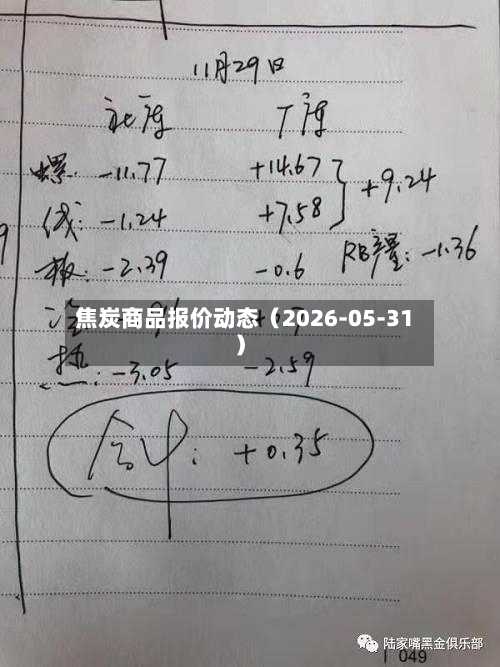 11月29日
社库 厂库
螺: -11.77 +14.67
+9.24
线: -1.24 +7.58
RB产量: -1.36
板: -2.39 -0.6
焦炭商品报价动态（2026-05-31
）
热: -3.05 -2.59
合计: +0.35
陆家嘴黑金俱乐部
049